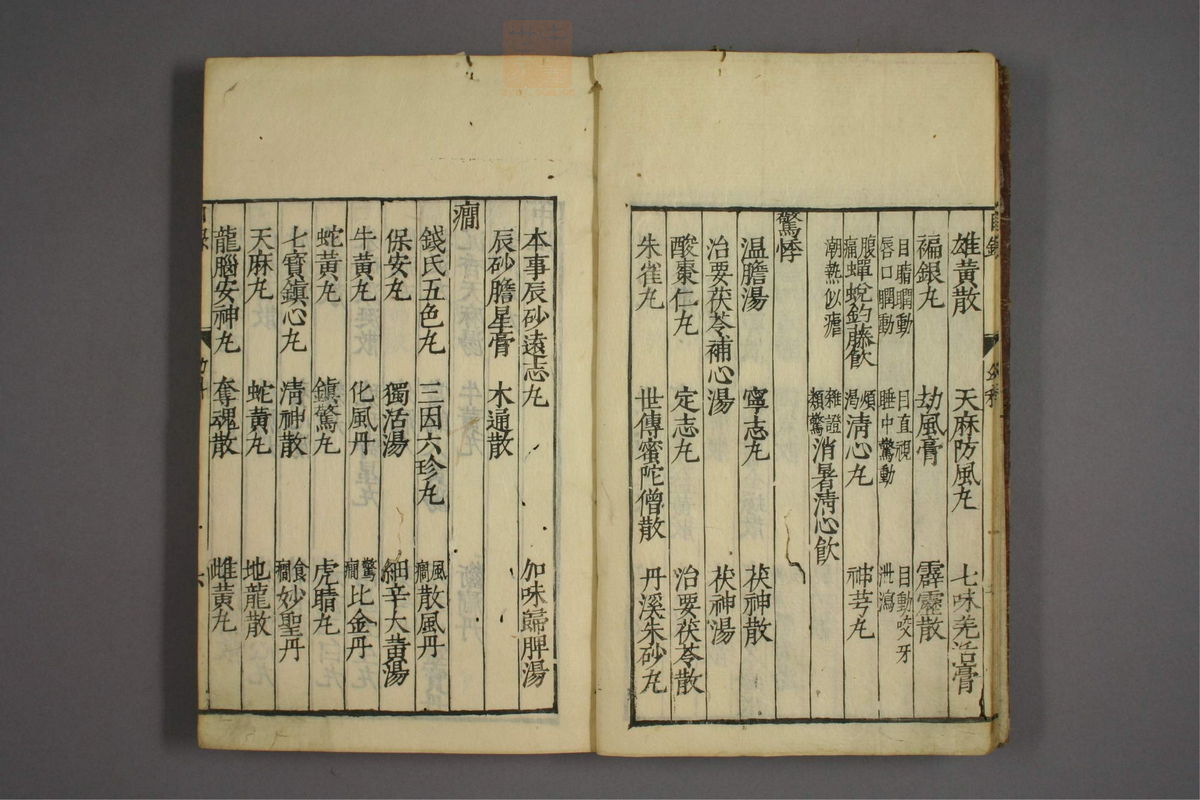 雄黃散 天麻防風丸 七味羌活膏
褊銀丸 劫風膏 霹靂散
目睛瞤動 目直視 目動咬牙
唇口瞤動 睡中驚動 泄瀉
腹痛蟬蛻鈎藤飲 煩渴清心丸 神芎丸
潮熱似瘧 雜證類驚消暑清心飲
驚悸
温膽湯 寧志丸 茯神散
治要茯苓補心湯 茯神湯
酸棗仁丸 定志丸 治要茯苓散
朱雀丸 世傳蜜陀僧散 丹溪朱砂丸
本事辰砂遠志丸 加味歸脾湯
辰砂膽星膏 木通散
癇
錢氏五色丸 三因六珍丸 風癇散風丹
保安丸 獨活湯 細辛大黃湯
牛黃丸 化風丹 驚癇比金丹
蛇黃丸 鎮驚丸 虎睛丸
七寶鎮心丸 清神散 食癇妙聖丹
天麻丸 蛇黃丸 地龍散
龍腦安神丸 奪魂散 雌黃丸